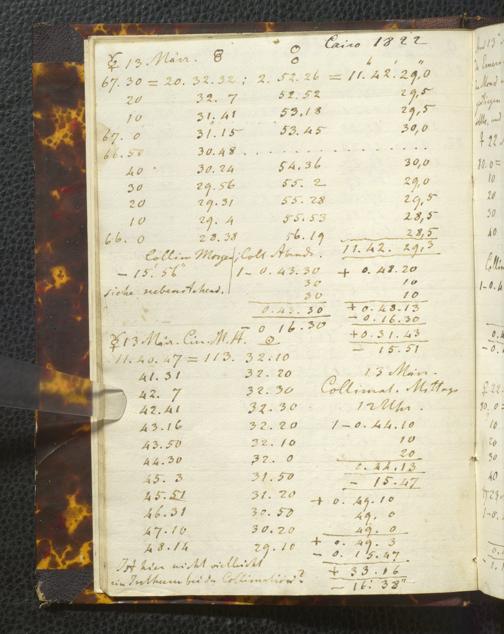 Cairo 1822
☿ 13 März.
67.30 = 20. 32.32; 2. 52.26 = 11. 42. 29,0
20 32. 7 52.52 29,5
10 31.41 53.18 29,5
67. 0 31.15 53.45 30,0
66.50 30.48 . . . . . . . . . .
40 30.24 54.36 30,0
30 29.56 55. 2 29,0
20 29.31 55.28 29,5
10 29. 4 55.53 28,5
66. 0 28.38 56.19 28,5
11. 42. 29,3
Collim Morgen; Coll. Abends.
- 15.56" 1- 0.43.30 + 0.48.20
siehe nebenstehend. 30 10
30 10
0.43.30 + 0.48.13
- 0 16.30 - 0.16.30
+ 0.31.43
- 15.51
☿ 13 März. Cir. M. H. ☉
11.40.47 = 113. 32.10
41.31 32.20
42. 7 32.30
42.41 32.30
43.16 32.20
43.50 32.10
44.30 32. 0
45. 3 31.50
45.51 31.20
46.31 30.50
47.10 30.20
48.14 29.10
13 März.
Collimat. Mittags
12 Uhr.
1- 0.44.10
10
20
0.44.13
- 15.47
+ 0.49.10
49. 0
49. 0
+ 0.49.3
- 0.15.47
+ 33.16
- 16.38"
Ist hier nicht vielleicht
ein Irrthum bei der Collimation?